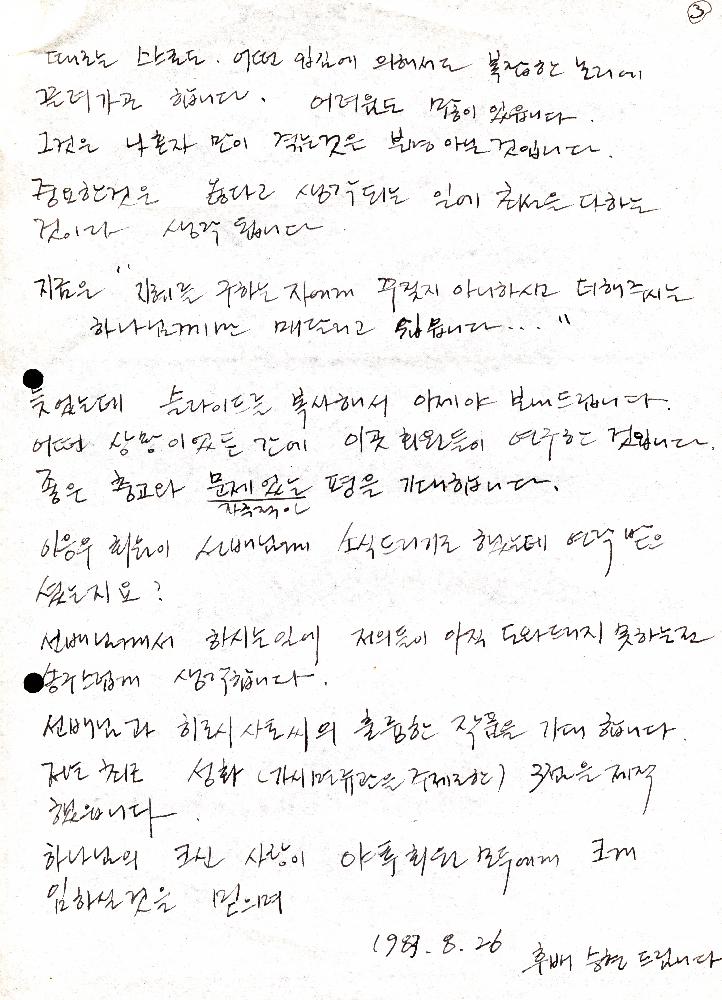 ③
때로는 스스로도. 어떤 입김에 의해서도 복잡한 논리에
끌려가곤 합니다. 어려움도 많이 있읍니다.
그것은 나 혼자 만이 겪는것은 분명 아닐 것입니다.
중요한것은 옳다고 생각되는 일에 최선을 다하는
것이라 생각 됩니다
지금은 "지혜를 구하는 자에게 꾸짖지 아니하시고 더해주시는
하나님께만 매달리고 싶읍니다...."
늦었는데 슬라이드를 복사해서 이제야 보내드립니다.
어떤 상황이 있든 간에 이곳 회원들이 연구한 것입니다.
좋은 충고와 문제있는 평을 기대합니다.
자극적인
이응우 회원이 선배님께 소식드리기로 했는데 연락 받으
셨는지요?
선배님께서 하시는일에 저희들이 아직 도와드리지 못하는점
송구스럽게 생각합니다.
선배님과 히로시 사토씨의 훌륭한 작품을 기대 합니다.
저는 최근 성화 (가시면류관을 주제로한) 3점을 제작
했읍니다
하나님의 크신 사랑이 야투회원 모두에게 크게
임하실것을 믿으며
1989. 8. 26
후배 승현 드립니다